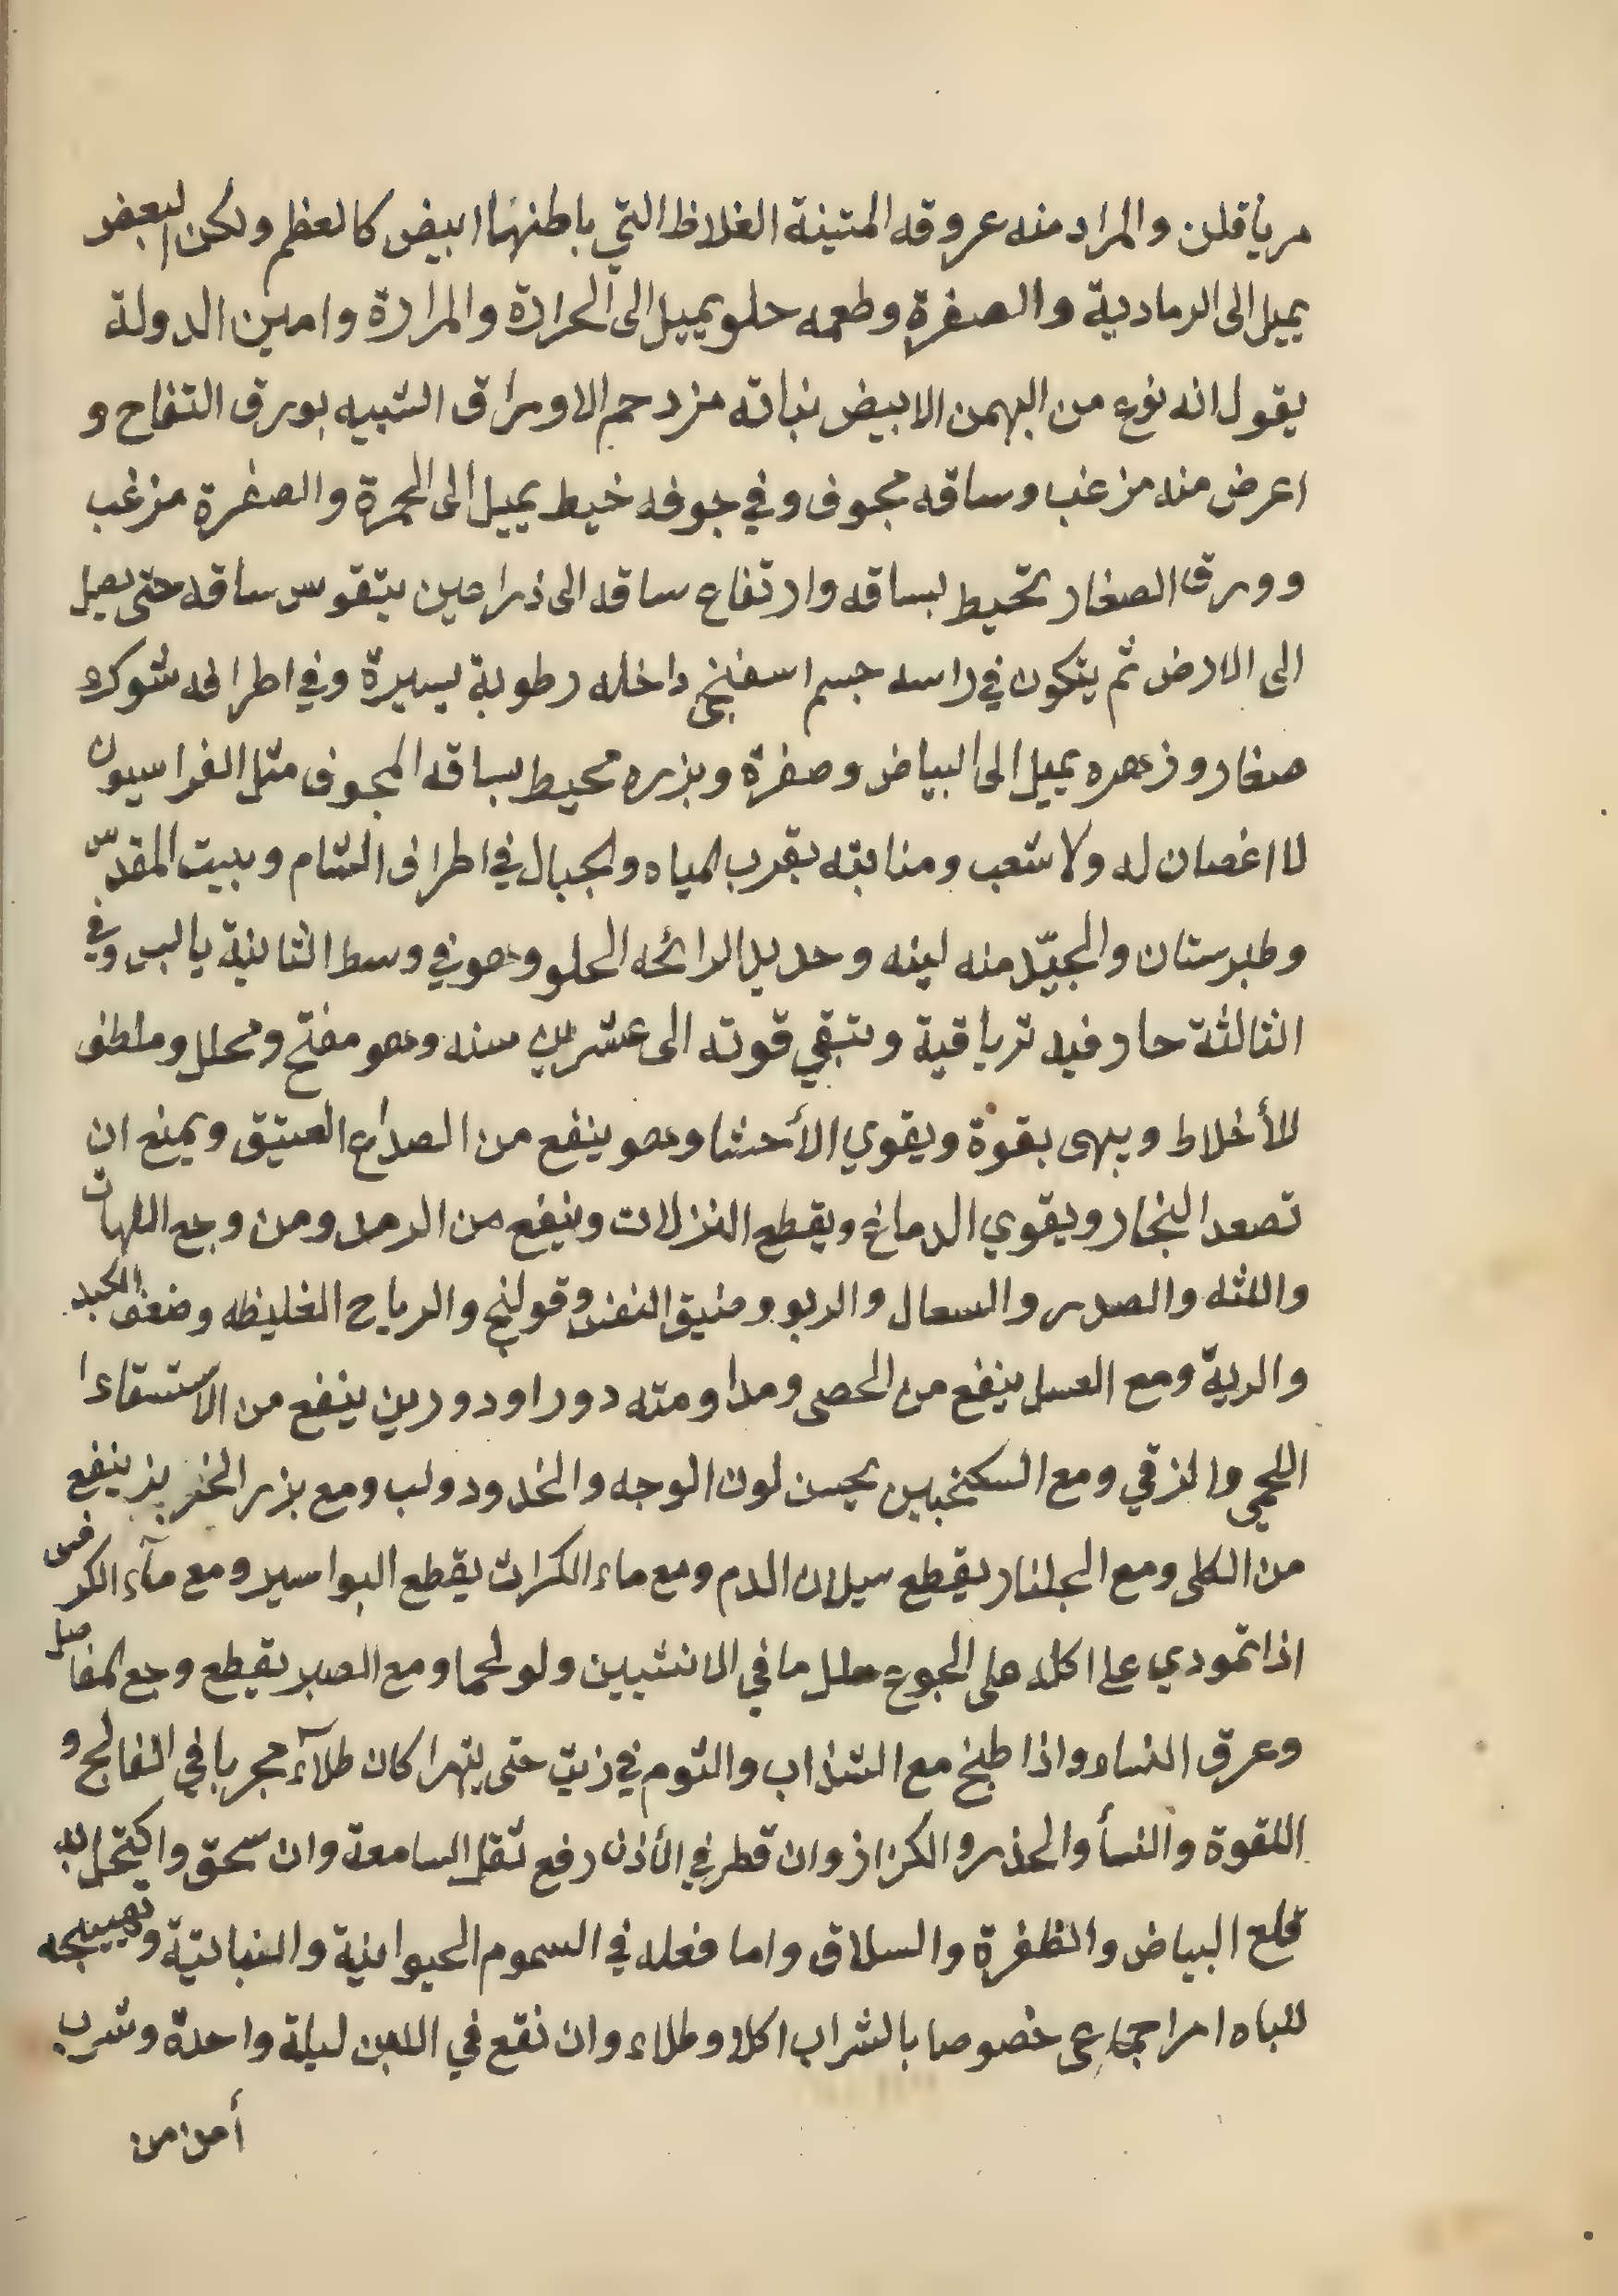 مرياقلن والمراد منه عروقه المتينة الغلاظ التي باطنها ابيض كالعظم ولكن البعض
يميل الى الرمادية والصفرة وطعمه حلو يميل الى الحرارة والمرارة وامين الدولة
يقول انه نوع من البهمن الابيض نباته مزدحم الاوراق الشبيه بورق التفاح و
اعرض منه مزغب وساقه مجوف وفي جوفه خيط يميل الى الحمرة والصفرة مزغب
وورق الصغار تحيط بساقه وارتفاع ساقه الى ذراعين يتقوس ساقه حتى يصل
الى الارض ثم يتكون في راسه جسم اسفنجي داخله رطوبة يسيرة وفي اطرافه شوكه
صغار وزهره يميل الى البياض وصفرة وبزره محيط بساقه المجوف مثل الفراسيون
لا اغصان له ولا شعب ومنابته بقرب المياه والجبال في اطراف الشام وبيت المقدّس
وطبرستان والجيّد منه لينه وحديد الرائحه الحلو وهو في وسط الثانية يابس وفي
الثالثة حار وفيه ترياقية وتبقي قوته الى عشرين سنه وهو مفتح ومحلل وملطف
للأخلاط ويبهى بقوة ويقوي الأحشا وهو ينفع من الصداع العتيق ويمنع ان
تصعد البخار ويقوي الدماغ ويقطع النزلات وينفع من الرمد ومن وجع اللهات
واللثه والصدر والسعال والربو وضيق النفس وقولنج والرياح الغليظه وضعف الكبد
والرية ومع العسل ينفع من الحصى ومداومته دورا ودورين ينفع من الاستسقاءا
اللحمي والزقي ومع السكنجبين يحسن لون الوجه والخدود ولب ومع بزر الخربز ينفع
من الكلى ومع الجلنار يقطع سيلان الدم ومع ماء الكراث يقطع البواسير ومع مآء الكرفس
اذا تمودي على اكله على الجوع حلل ما في الانثيين ولو لحما ومع الصبر يقطع وجع المفاصل
وعرق النساء واذا طبخ مع الشذاب والثوم في زيت حتى يتهرا كان طلآء مجربا في الفالج و
اللقوة والنسأ والخذر والكزاز وان قطر في الأذن رفع ثقل السامعة وان سحق واكتحل به
قلع البياض والظفرة والسلاق واما فعله في السموم الحيوانية والنباتية وتهييجه
للباه امر اجماعي خصوصا بالشراب اكلا وطلاء وان نقع في اللبن ليلة واحدة وشرب
أمن من